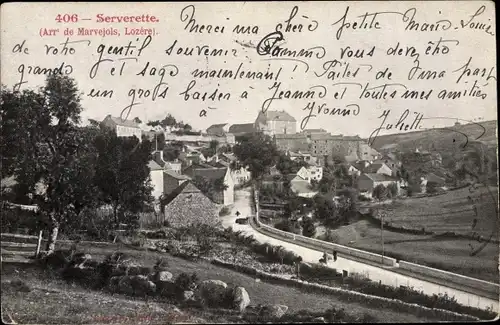 406 – Serverette.
(Arrt de Marvejols, Lozère).
Merci ma chère petite Marie-Louise
de votre gentil souvenir. Comme vous devez être
grande et sage maintenant! Faites de ma part
un gros baiser à Jeanne et toutes mes amitiés
à Yvonne Juliette